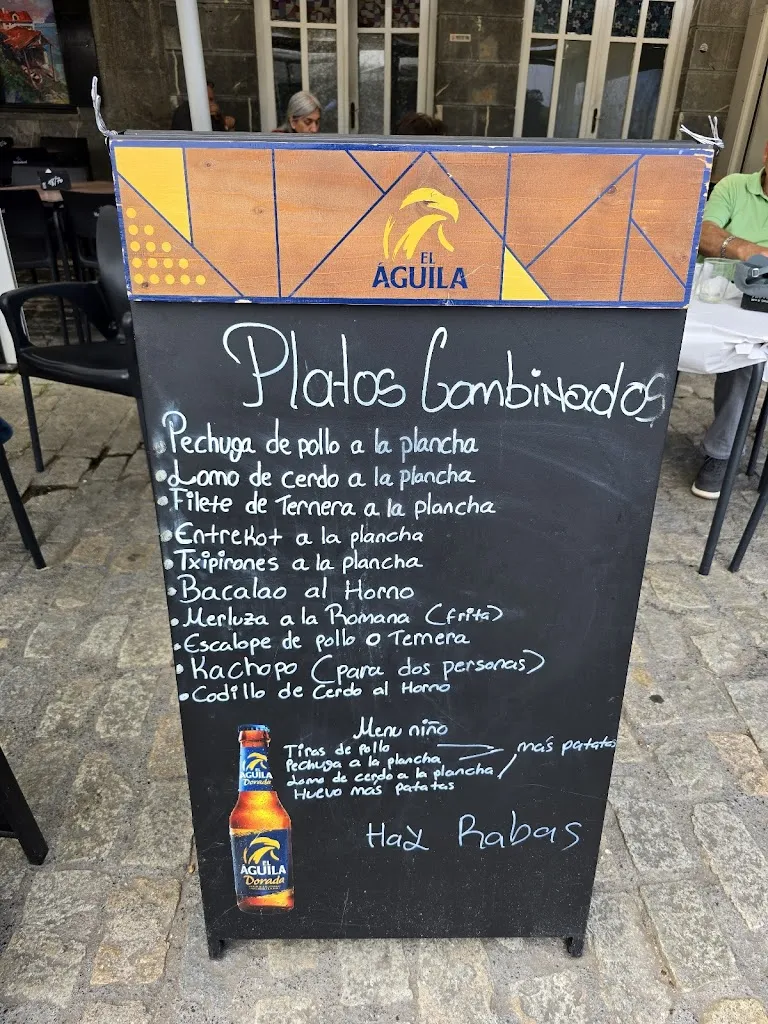 EL
ÁGUILA
Platos Combinados
Pechuga de pollo a la plancha
• Lomo de cerdo a la plancha
• Filete de Ternera a la plancha
• Entrekot a la plancha
• Txipirones a la plancha
• Bacalao al Horno
• Merluza a la Romana (frita)
• Escalope de pollo o Ternera
• Kachopo (para dos personas)
• Codillo de Cerdo al Horno
Menu niño
Tiras de Pollo
más patatas
Pechuga a la plancha
Lomo de cerdo a la plancha
Huevo más patatas
Hay Rabas
ÁGUILA
Dorada
EL
ÁGUILA
Dorada